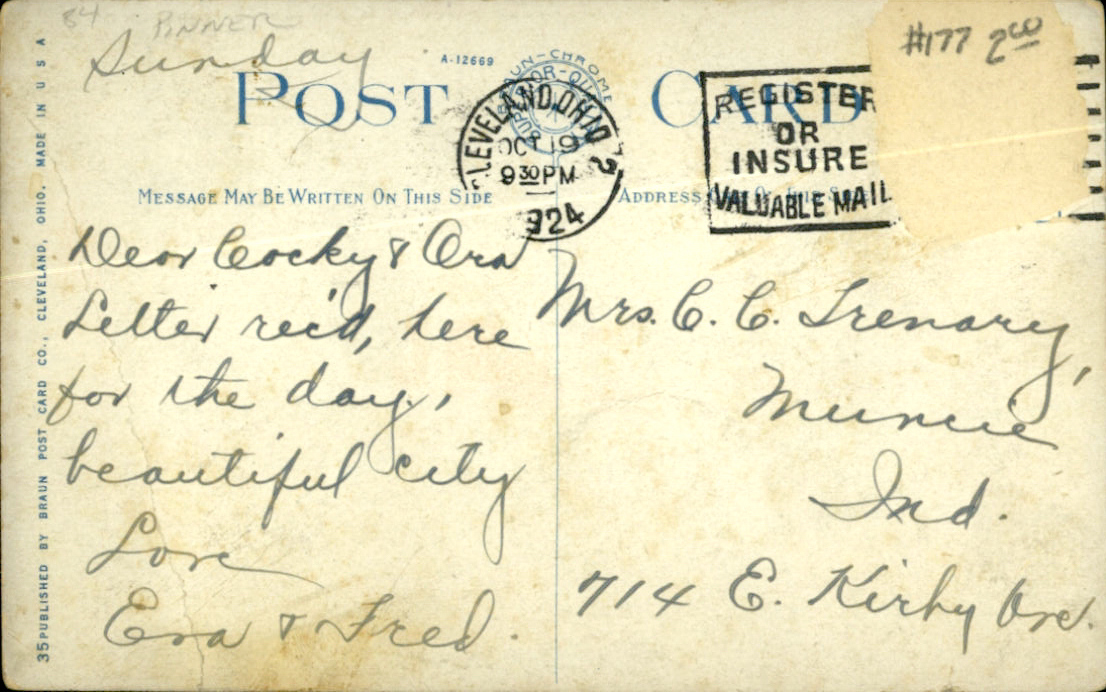 84
Sunday
A-12669
#177 2.00
POST CARD
CLEVELAND, OHIO 2
OCT 19
9 30 PM
1924
REGISTER
OR
INSURE
VALUABLE MAIL
MESSAGE MAY BE WRITTEN ON THIS SIDE
ADDRESS
Dear Cocky & Ora
Letter rec'd, here
for the day,
beautiful city
Love
Eva & Fred.
Mrs. C. C. Trenary,
Muncie
Ind.
714 E. Kirby Ave.
35 PUBLISHED BY BRAUN POST CARD CO., CLEVELAND, OHIO. MADE IN U S A